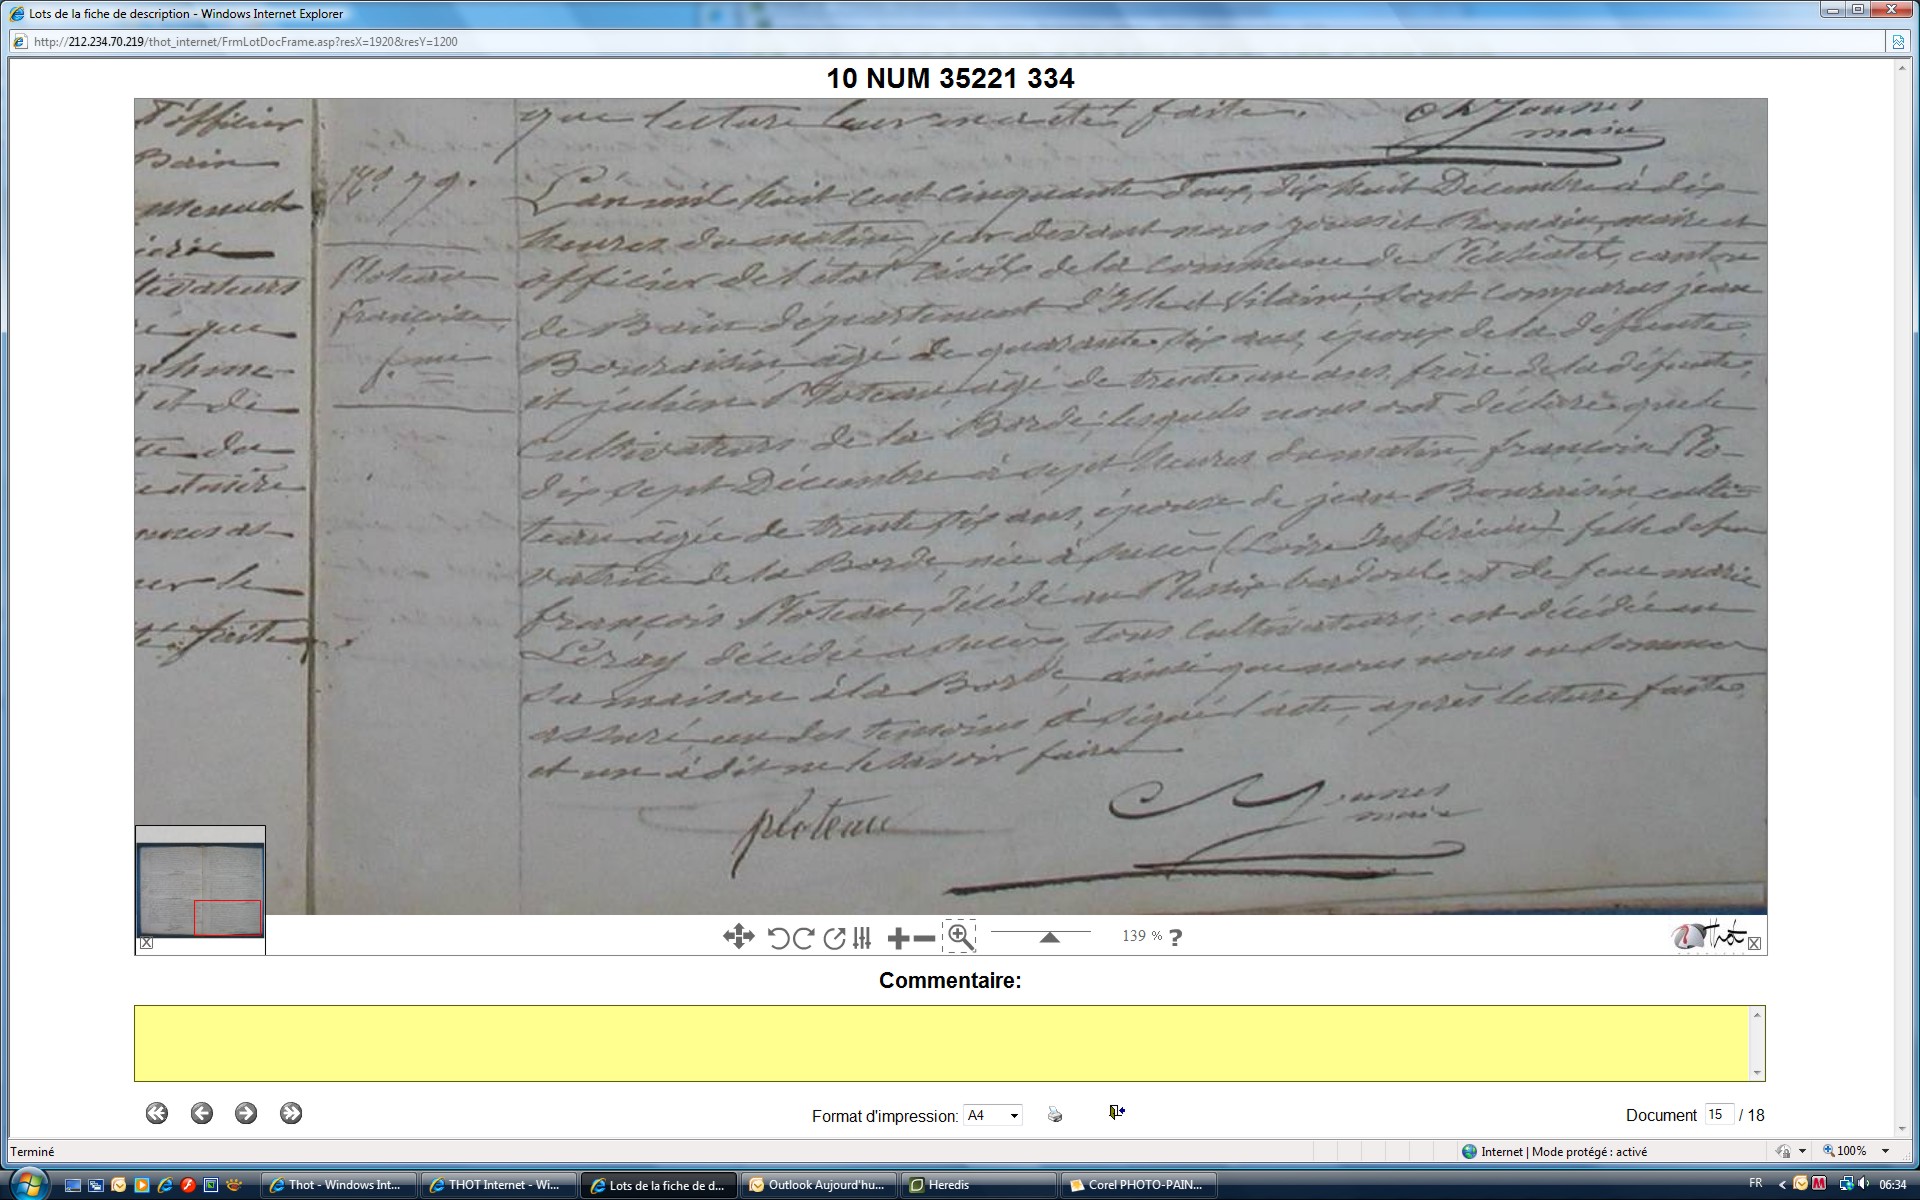 Lots de la fiche de description - Windows Internet Explorer
http://212.234.70.219/thot_internet/FrmLotDocFrame.asp?resX=1920&resY=1200
10 NUM 35221 334
d'officier
Bain
que lecture leur en a été faite.
maire
N° 79.
Ploteau
françoise,
f.me
L'an mil huit cent cinquante deux, dix huit Décembre à dix
heures du matin, par devant nous Romain, maire et
officier de l'état civil de la commune de canton
de Bain département d'Ille et Vilaine, sont comparus jean
Bouraisin, agé de quarante six ans, époux de la défunte
et julien Ploteau, agé de trente un ans, frère de la défunte,
cultivateurs de la Borde, lesquels nous ont déclaré que le
dix sept Décembre à sept heures du matin, françoise Plo-
teau agée de trente six ans, épouse de jean Bouraisin culti-
vatrice de la Borde, née à Sucé (Loire Inférieure) fille de feu
françois Ploteau, décédé au Plessix bardoult, et de feue marie
Leray décédée à Sucé, tous cultivateurs; est décédée en
sa maison à la Borde, ainsi que nous nous en sommes
assuré un des temoins à signé l'acte, après lecture faite,
et un à dit ne le savoir faire
tivateurs
que
et de
te du
ances as-
ner le
té faite
ploteau
maire
139 % ?
Thot
Commentaire:
Format d'impression: A4
Document 15 / 18
Terminé
Internet | Mode protégé : activé
100%
Thot - Windows Int...
THOT Internet - Wi...
Lots de la fiche de d...
Outlook Aujourd'hu...
Heredis
Corel PHOTO-PAIN...
FR
06:34